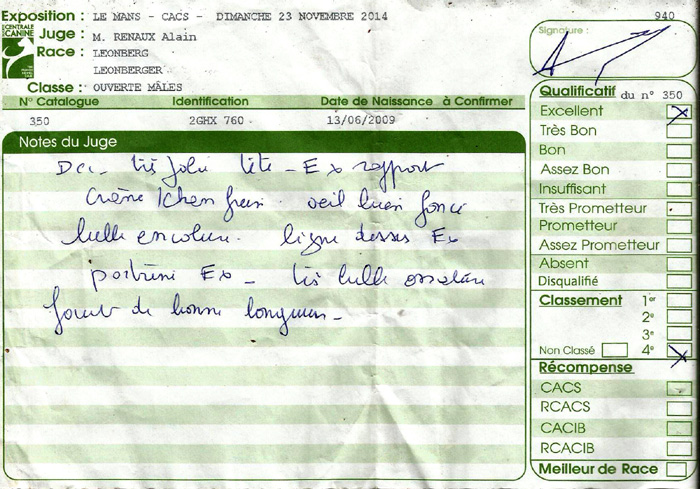 Exposition : LE MANS - CACS - DIMANCHE 23 NOVEMBRE 2014
940
CENTRALE CANINE
Juge : M. RENAUX Alain
Race : LEONBERG
LEONBERGER
Classe : OUVERTE MÂLES
N° Catalogue Identification Date de Naissance à Confirmer
350 2GHX 760 13/06/2009
Notes du Juge
très jolie tête - Ex rapport
crâne / chanfrein. oeil bien foncé
belle encolure. ligne dessus Ex
poitrine Ex - très belle ossature
fouet de bonne longueur -
Signature :
Qualificatif du n° 350
Excellent X
Très Bon
Bon
Assez Bon
Insuffisant
Très Prometteur
Prometteur
Assez Prometteur
Absent
Disqualifié
Classement 1er
2e
3e
Non Classé 4e X
Récompense
CACS
RCACS
CACIB
RCACIB
Meilleur de Race